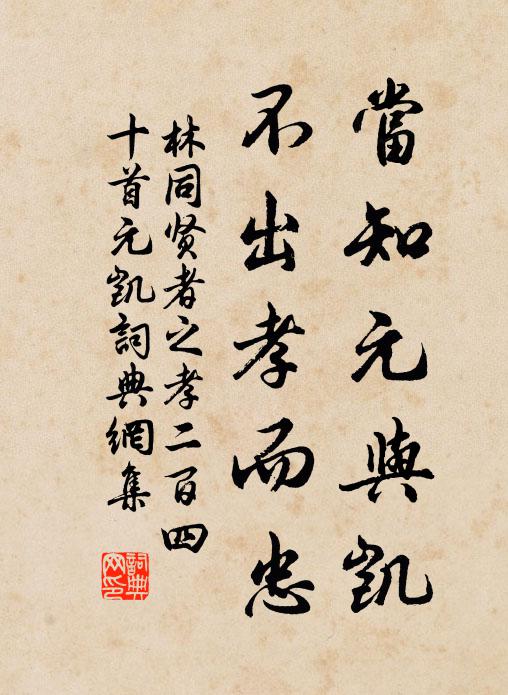 當知元與凱
不出孝而忠
林同贤者之孝二百四
十首元凱詞典網集
詞典網印